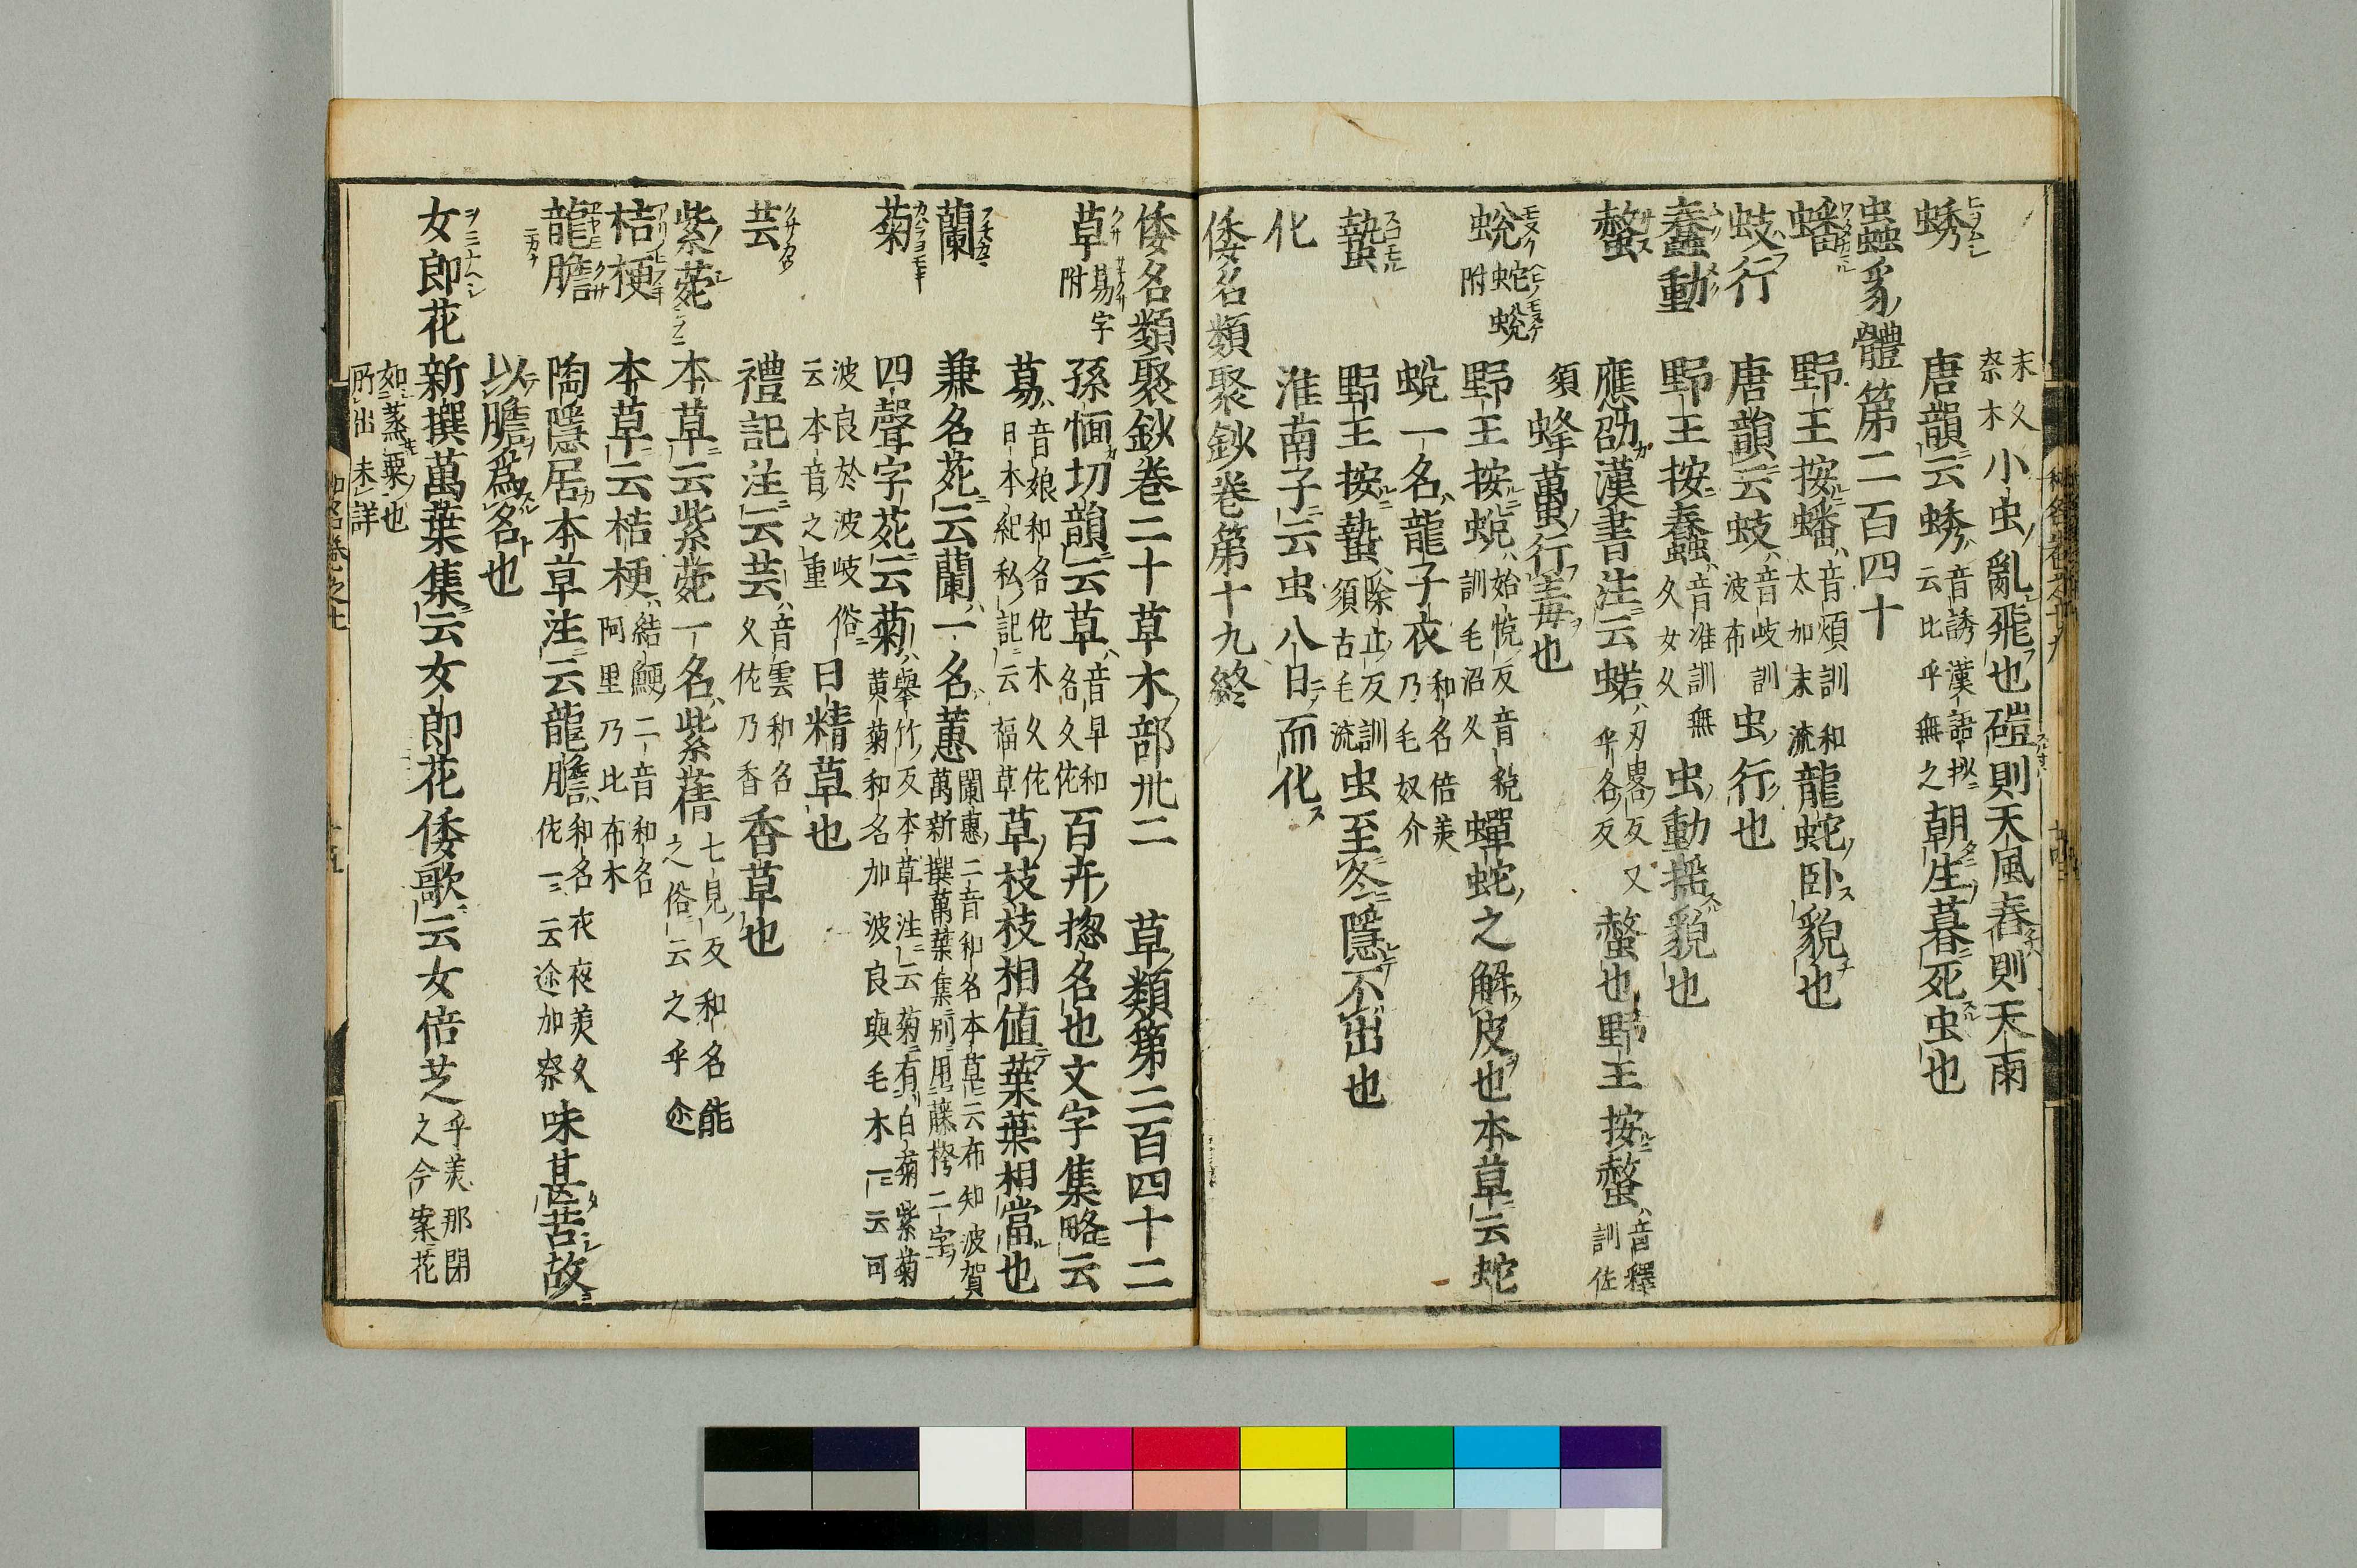 末久祭木小虫亂飛也磑則天風舂則天雨
蜏 唐韻云蜏音誘漢語抄云比乎無之朝生暮死虫也
虫蟲豸體第二百四十
蟠 野王按蟠音煩訓和太加末流龍蛇卧貌也
蚑行 唐韻云蚑音岐訓波布虫行也
蠢動 野王按蠢音准訓無久女久虫動揺貌也
螫 應劭漢書注云蠚刃畧反又乎各反螫也野王按螫音釋訓佐
須 蜂蠆行毒也
蛻 蛇蛻附 野王按蛻始悦反音税訓毛沼久蟬蛇之解皮也本草云蛇
蛻一名龍子衣和名倍美乃毛奴介
蟄 野王按蟄除立反訓須古毛流虫至冬隱不出也
化 淮南子云虫八日而化
倭名類聚鈔卷第十九終
倭名類聚鈔卷二十草木部卅二 草類第二百四十二
草 葛字附 孫愐切韻云草音早和名久佐百卉揔名也文字集略云
葛音娘和名佐木久佐日本紀私記云福草草枝枝相値葉葉相當也
蘭 兼名苑云蘭一名蕙闌惠二音和名本草云布知波賀萬新撰萬葉集別用藤袴二字
菊 四聲字苑云菊舉竹反本草注云菊有白菊紫菊黄菊和名加波良與毛木一云可
波良於波岐俗云本音之重日精草也
芸 禮記注云芸音雲和名久佐乃香香草也
紫菀 本草云紫菀一名紫蒨七見反和名能之俗云之乎迩
桔梗 本草云桔梗結鯁二音和名阿里乃比布木
龍膽 陶隱居本草注云龍膽和名衣夜美久佐一云迩加奈味甚苦故
以膽爲名也
女郎花 新撰萬葉集云女郎花倭歌云女倍芝乎美那閉之今案花
如蒸粟也所出未詳